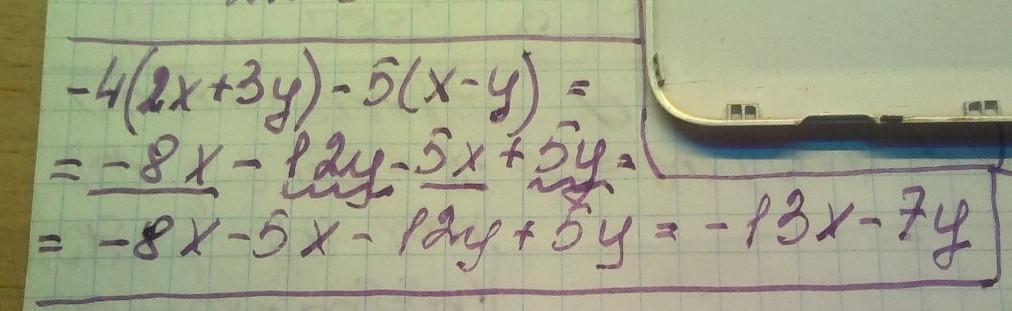 -4(2x+3y)-5(x-y)=
= -8x - 12y - 5x + 5y =
= -8x-5x-12y+5y = -13x-7y